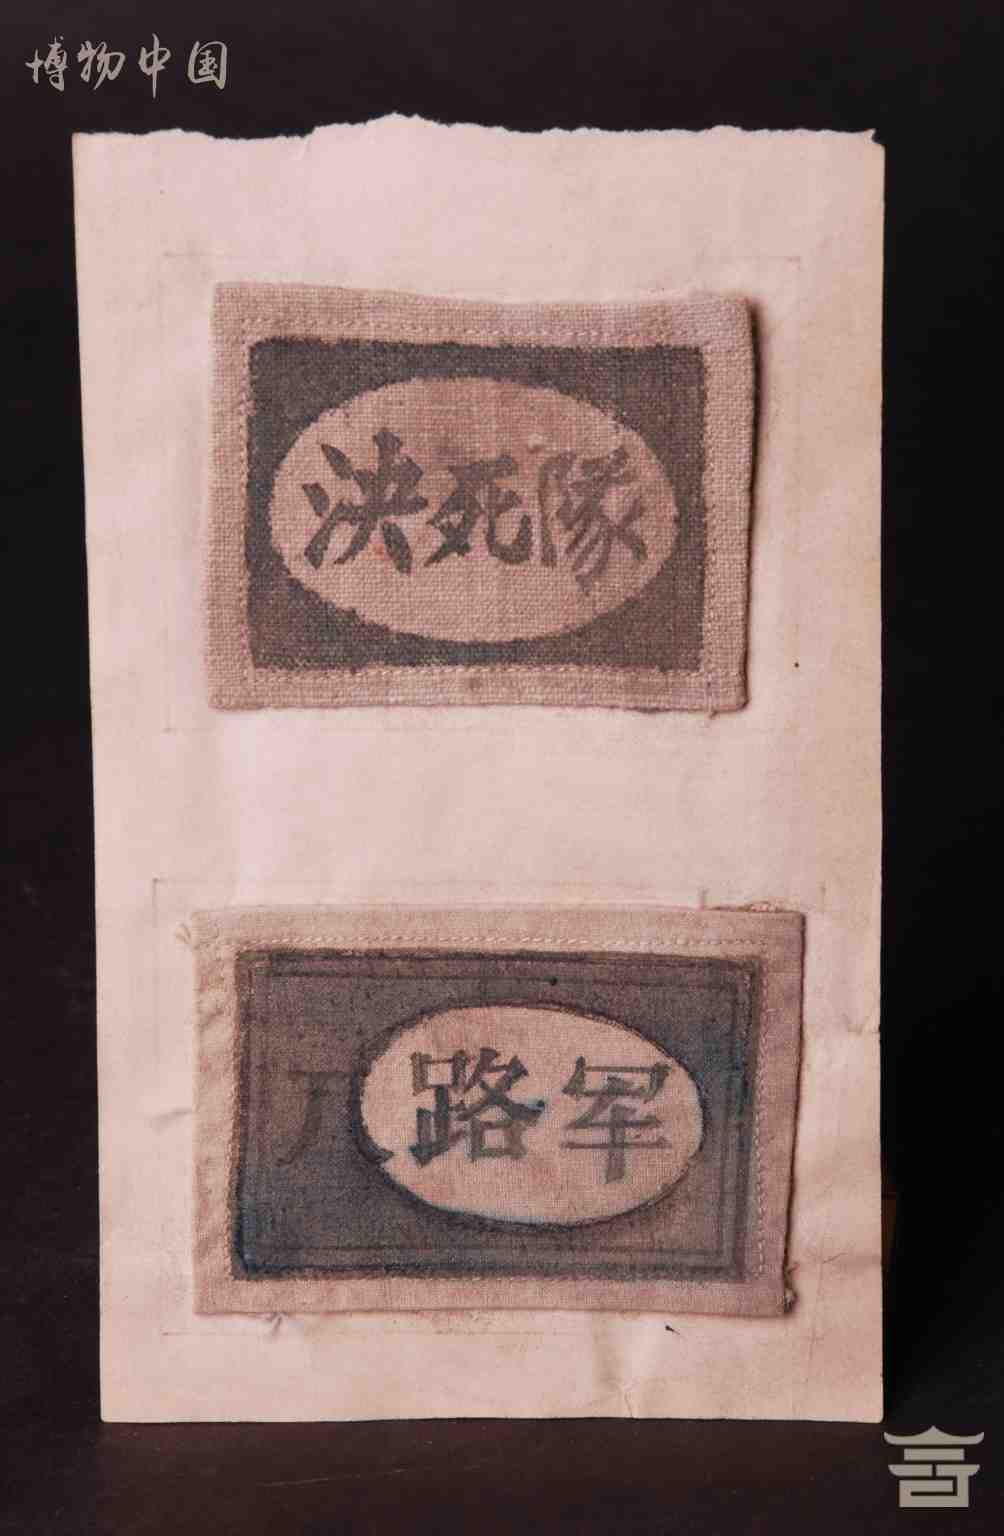 博物中国
决死隊
八路军